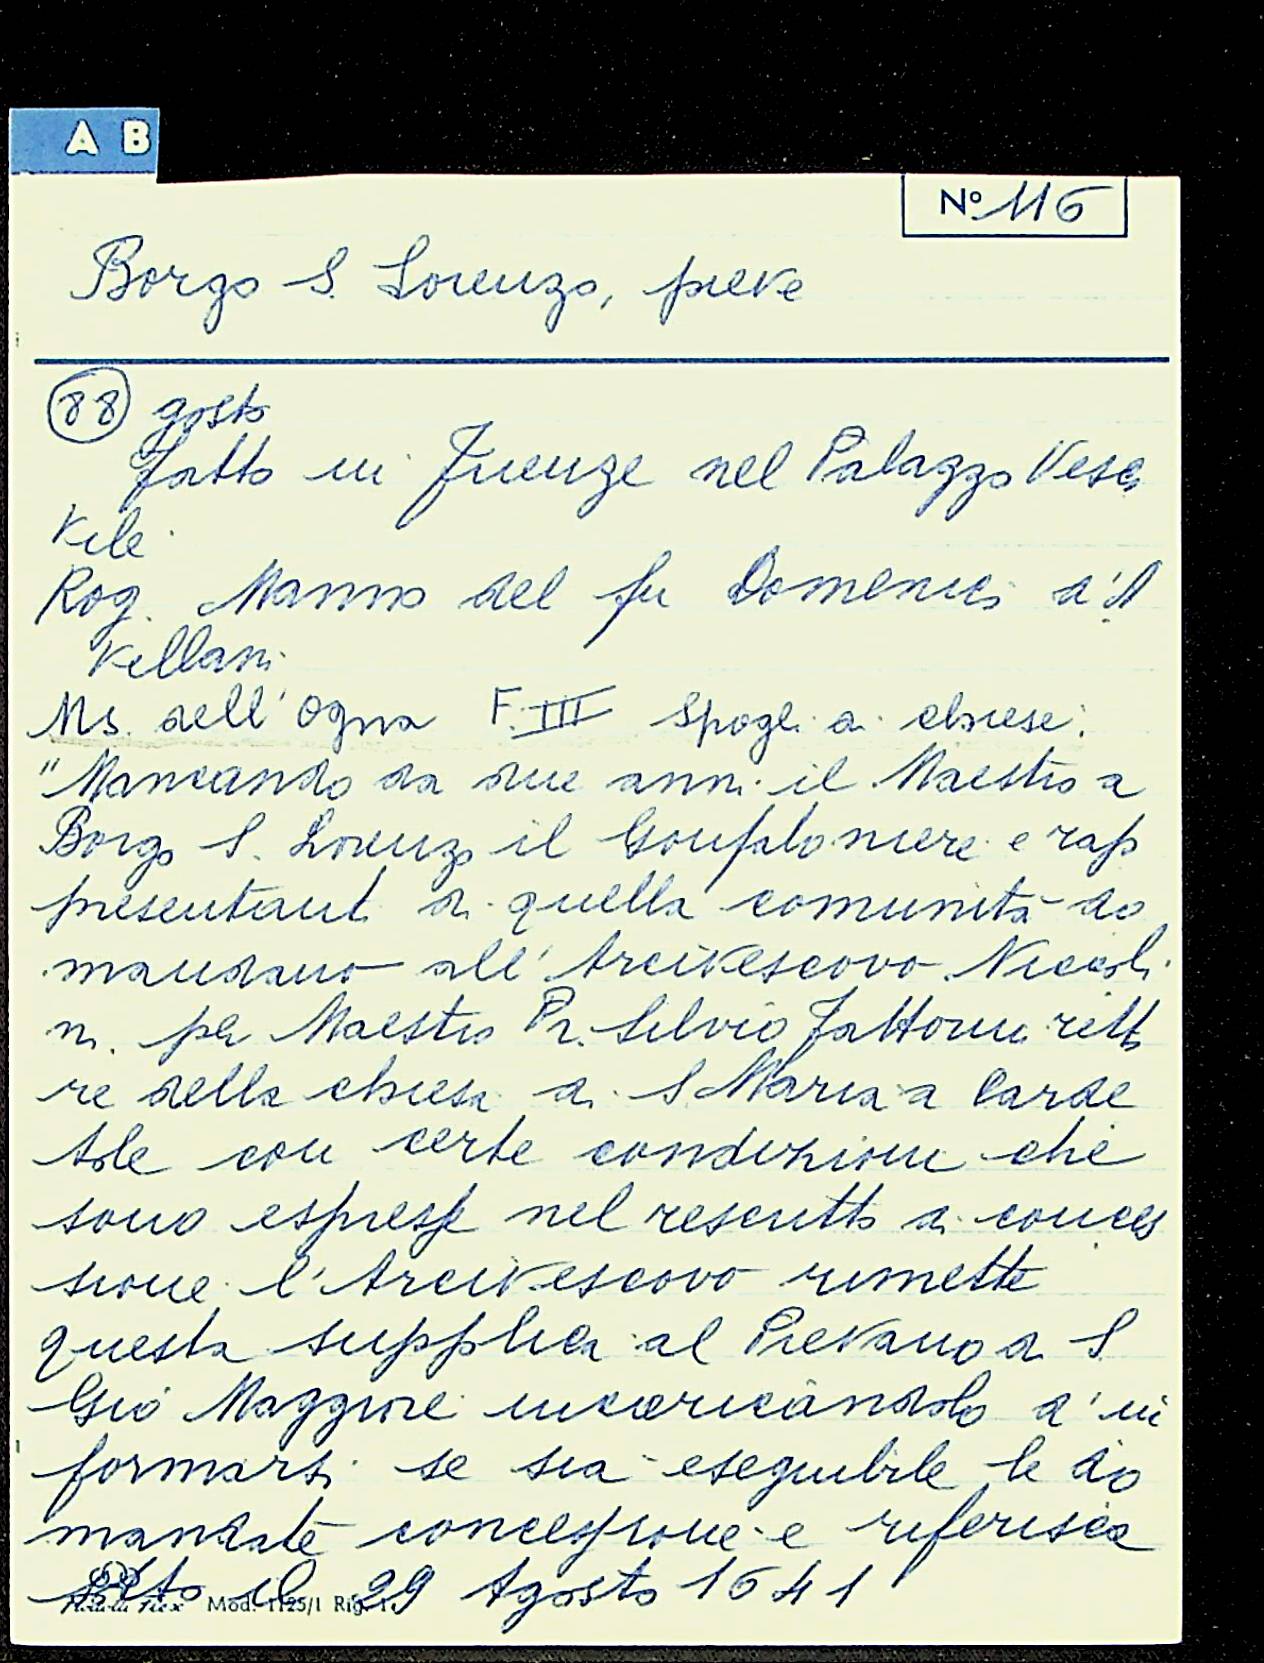 A B
Nº 116
Borgo S. Lorenzo, pieve
88 gosto
fatto in Firenze nel Palazzo Vesco
vile
Rog. Manno del fu Domenico d'A
vellani
Ms. dell'Ogna F. III Spogli di chiese:
"Mancando da due anni il Maestro a
Borgo S. Lorenzo il Gonfaloniere e rap
presentanti di quella comunità do
mandano all'Arcivescovo Niccoli
ni per Maestro Pr. Silvio Fattorini retto
re della chiesa di S Maria a Carde
tole con certe condizioni che
sono espresse nel rescritto di conces
sione. l'Arcivescovo rimette
questa supplica al Pievano di S
Gio Maggiore incaricandolo d'in
formarsi se sia eseguibile la do
mandata concessione e riferisca
sotto il 29 Agosto 1641
Mod. 1125/1 Rig. 1